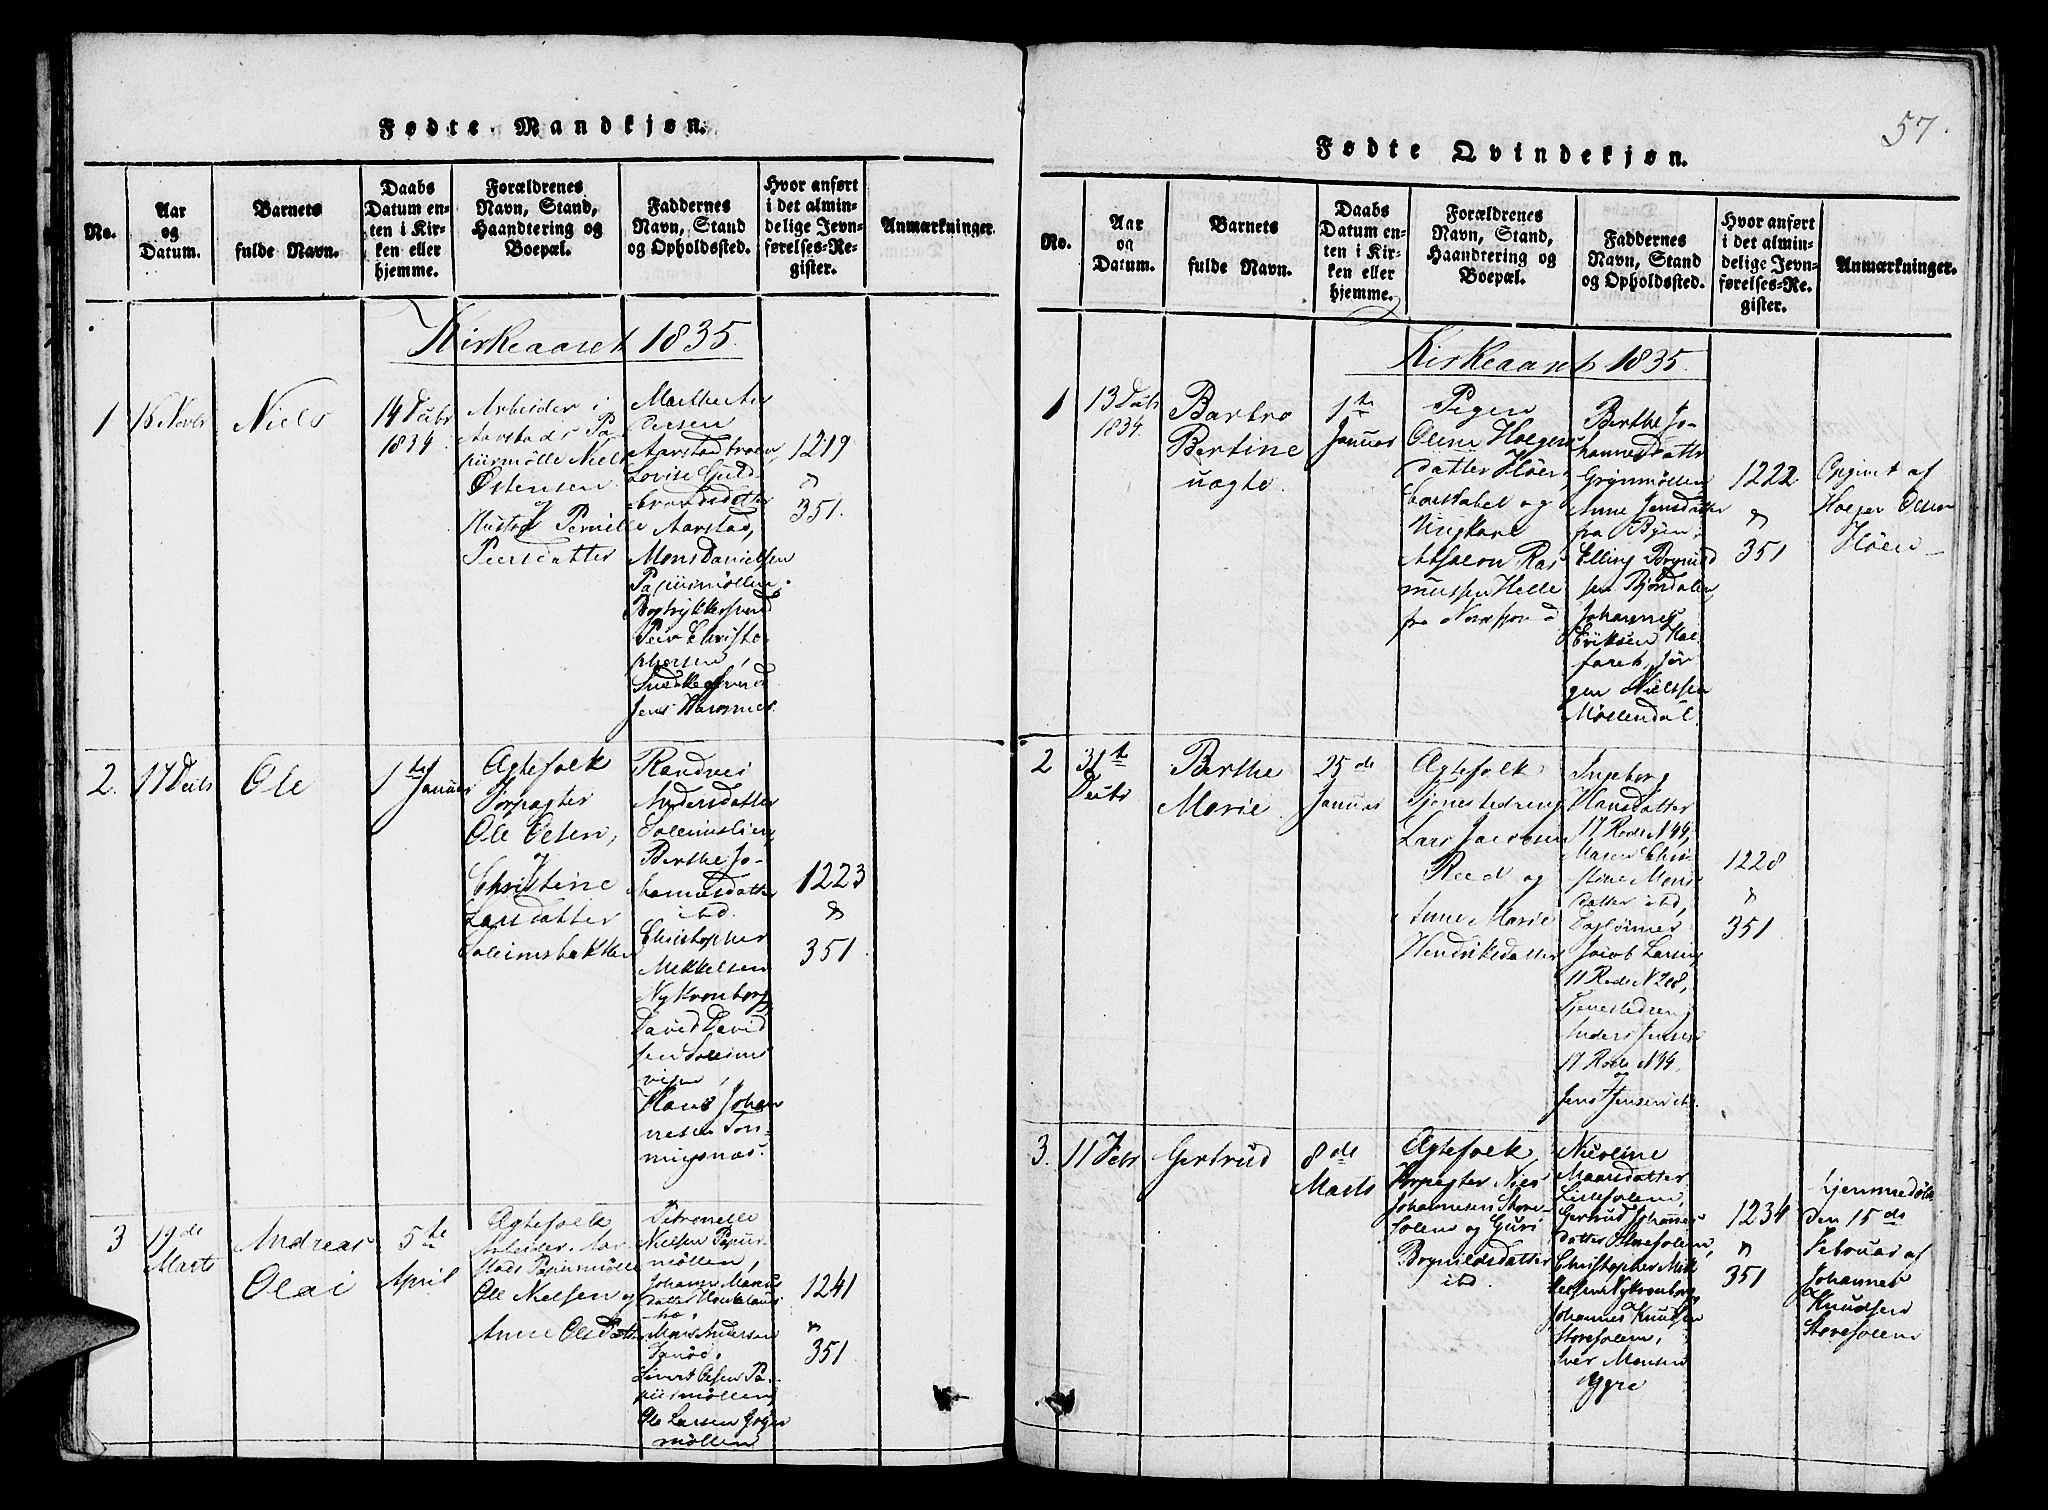 Fødte Mandkjøn.
No.
Aar
og
Datum.
Barnets
fulde Navn.
Daabs
Datum en-
ten i Kir-
ken eller
hjemme.
Forældrenes
Navn, Stand,
Haandtering og
Boepæl.
Faddernes
Navn, Stand
og Opholdssted.
Hvor anført
i det almin-
delige Jevn-
førelses-Re-
gister.
Anmærkninger.
Kirkeaaret 1835.
1
Novbr
Niels
14 Decbr
1834
Arbeider i
Aarstads Pa-
piirmølle Niels
Østensen
og
Hustod Pernille
Peersdatter
Marthe An-
dersen
Aarstadvolen,
Lovise Guld-
brandsdatter
Aarstad,
Mons Danielsen
Papiirmøllen,
Bogtrykkersvend
Peer Christo-
phersen,
Snedkersvend
Jens Hammer
1219
&
351.
2.
17 Decbr
Ole
1te Januar
Ægtefolk
Forpagter
Ole Olsen,
og
Christine
Larsdatter
Soleimsbakken
Randvei
Andersdatter
Soleimslien,
Berthe Jo-
hannesdatter
ibd.
Christopher
Mekkelsen
Nykronborg
David David
sen Soleims
vigen,
Hans Johan
nesen
1223
&
351
3
19de
Marts
Andreas
Olai
5te
April
Ægtefolk
Arbeider Aar-
stads Papiirmølle
Ole Nielsen og
Anne Olsdatter
Petronelle
Nielsen Papiir-
møllen,
Johanne Monus
datter
Mons Andersen
Endert Olsen Pa-
piirmøllen,
Ole Larsen
møllen
1241
&
351
57.
Fødte Qvindekjøn.
No.
Aar
og
Datum.
Barnets
fulde Navn.
Daabs
Datum en-
ten i Kir-
ken eller
hjemme.
Forældrenes
Navn, Stand,
Haandtering og
Boepæl.
Faddernes
Navn, Stand
og Opholdssted.
Hvor anført
i det almin-
delige Jevn-
førelses-Re-
gister.
Anmærkninger.
Kirkeaaret 1835.
1
13 Decbr
1834.
Barbro
Bertine
uægte.
1te
Januar
Pigen
Oline Holgers
datter Høien
og
Ungkarl
Absalon Ras
mussen Helle
fra Nordfjord
Berthe Jo-
hannesdatter
Grynmøllen
Anne Jensdatter
fra Byen,
Elling Brynild
sen Bjøndalen,
Johannes
Eriksen Kal-
faret, Jør
gen Nielsen
Møllendal.
1222
&
351
Opgivet af
Holger Olsen
Høien
2
31te
Decbr
Berthe
Marie
25de
Januar
Ægtefolk
Tjenestedreng
Lars Jacobsen
Reed og
Anne Marie
Hendriksdatter
Ingeborg
Hansdatter
17 Rode N 44,
Maren Chri-
stine Mons
datter ibd,
Dagløinner
Jacob Larsen
11 Rode N 208,
Tjenestedreng
Anders Jensen
17 Rode N 44
og
Jens Jensen ibd.
1228
&
351
3.
11 Febr
Gertrud
8de
Marts
Ægtefolk
Forpagter Niels
Johannesen Store-
solem og Guri
Brynildsdatter
ibd
Nicoline
Maarsdatter
Lillesolem,
Gertrud Johannes
datter Storesolem,
Christopher Mik
kelsen Nykronborg
Johannes Knudsen
Storesolem,
Iver Monsen
1234
&
351
hjemmedøbt
den 15de
Februar af
Johannes
Knudsen
Storesolem